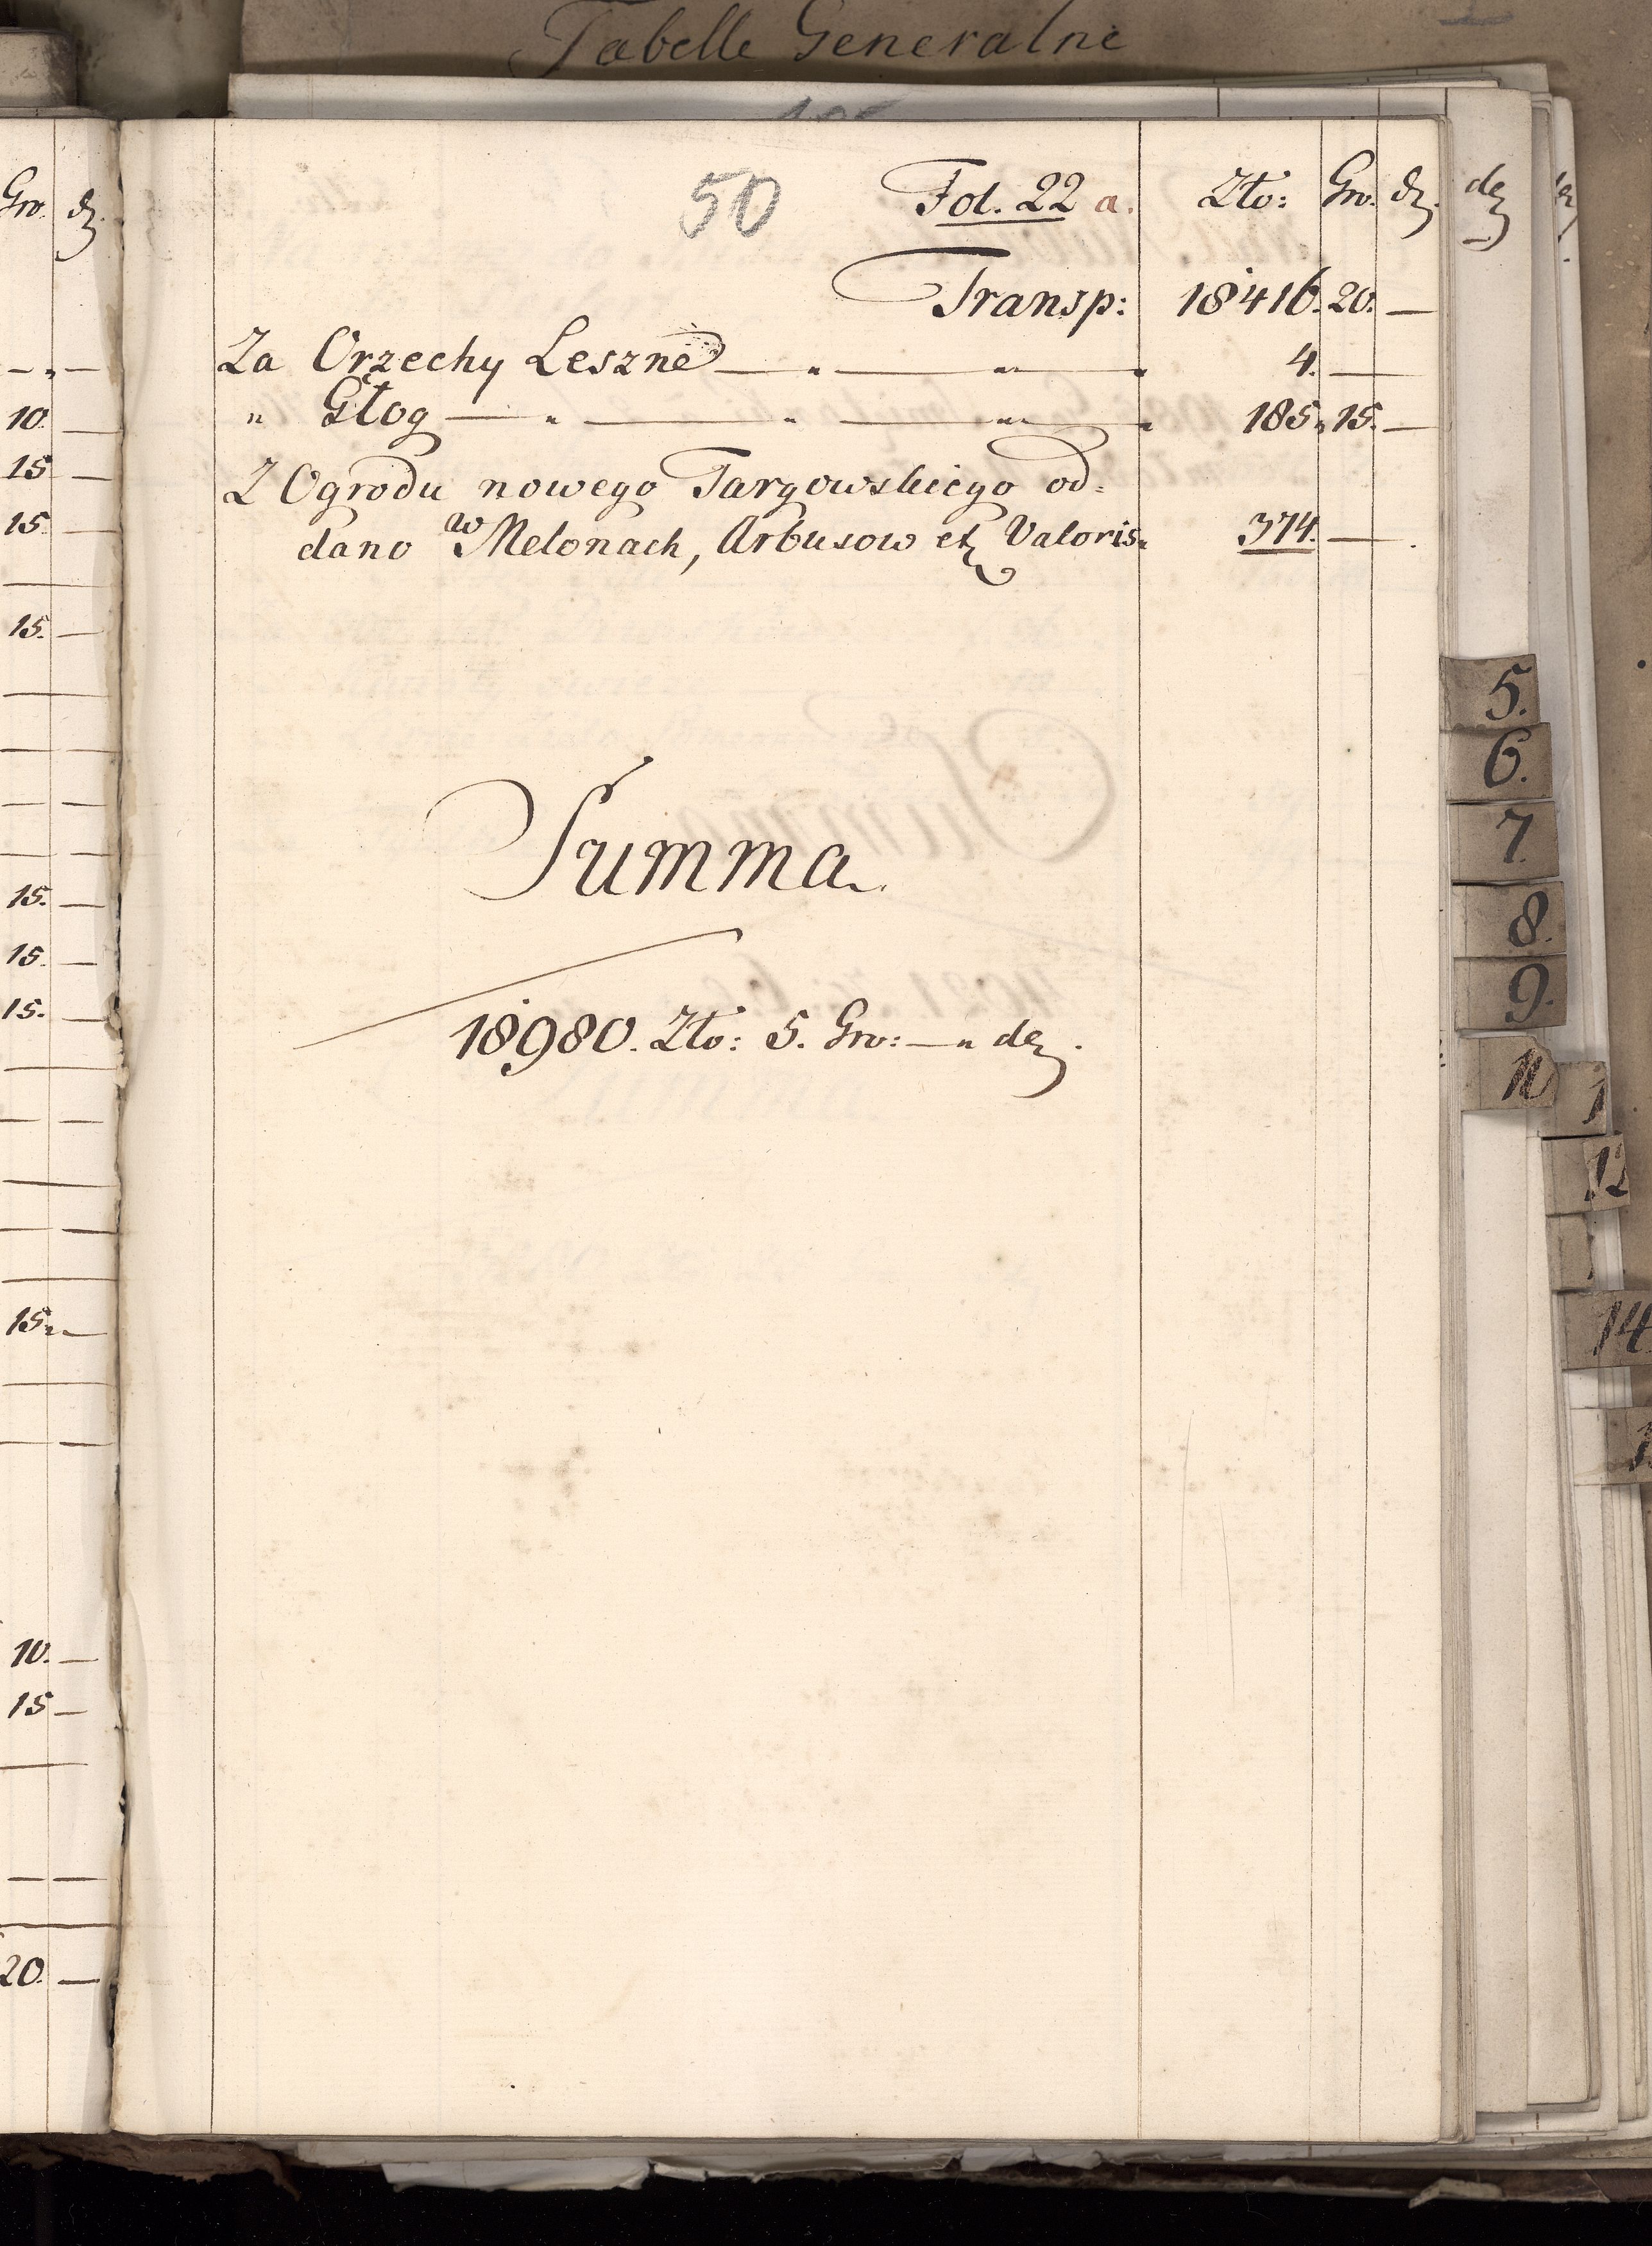 Tabelle Generalne
50 Fol. 22 a. Zło: Gro. dz.
Transp: 18416. 20. —
Za Orzechy Leszne — „ — „ — „ 4. —
„ Głog — „ — „ — „ — „ 185„ 15. —
Z Ogrodu nowego Targowskiego od=
dano w Melonach, Arbusow etz Valoris„ 374. — .
Summa.
18980. Zło: 5. Gro: —„ dez.
Gro. dz.
— „ —
10. —
15 —
15. —
15. —
15. —
15. —
15. —
15„ —
10. —
15 —
20. —
dez
5.
6.
7.
8.
9.
10
12
14